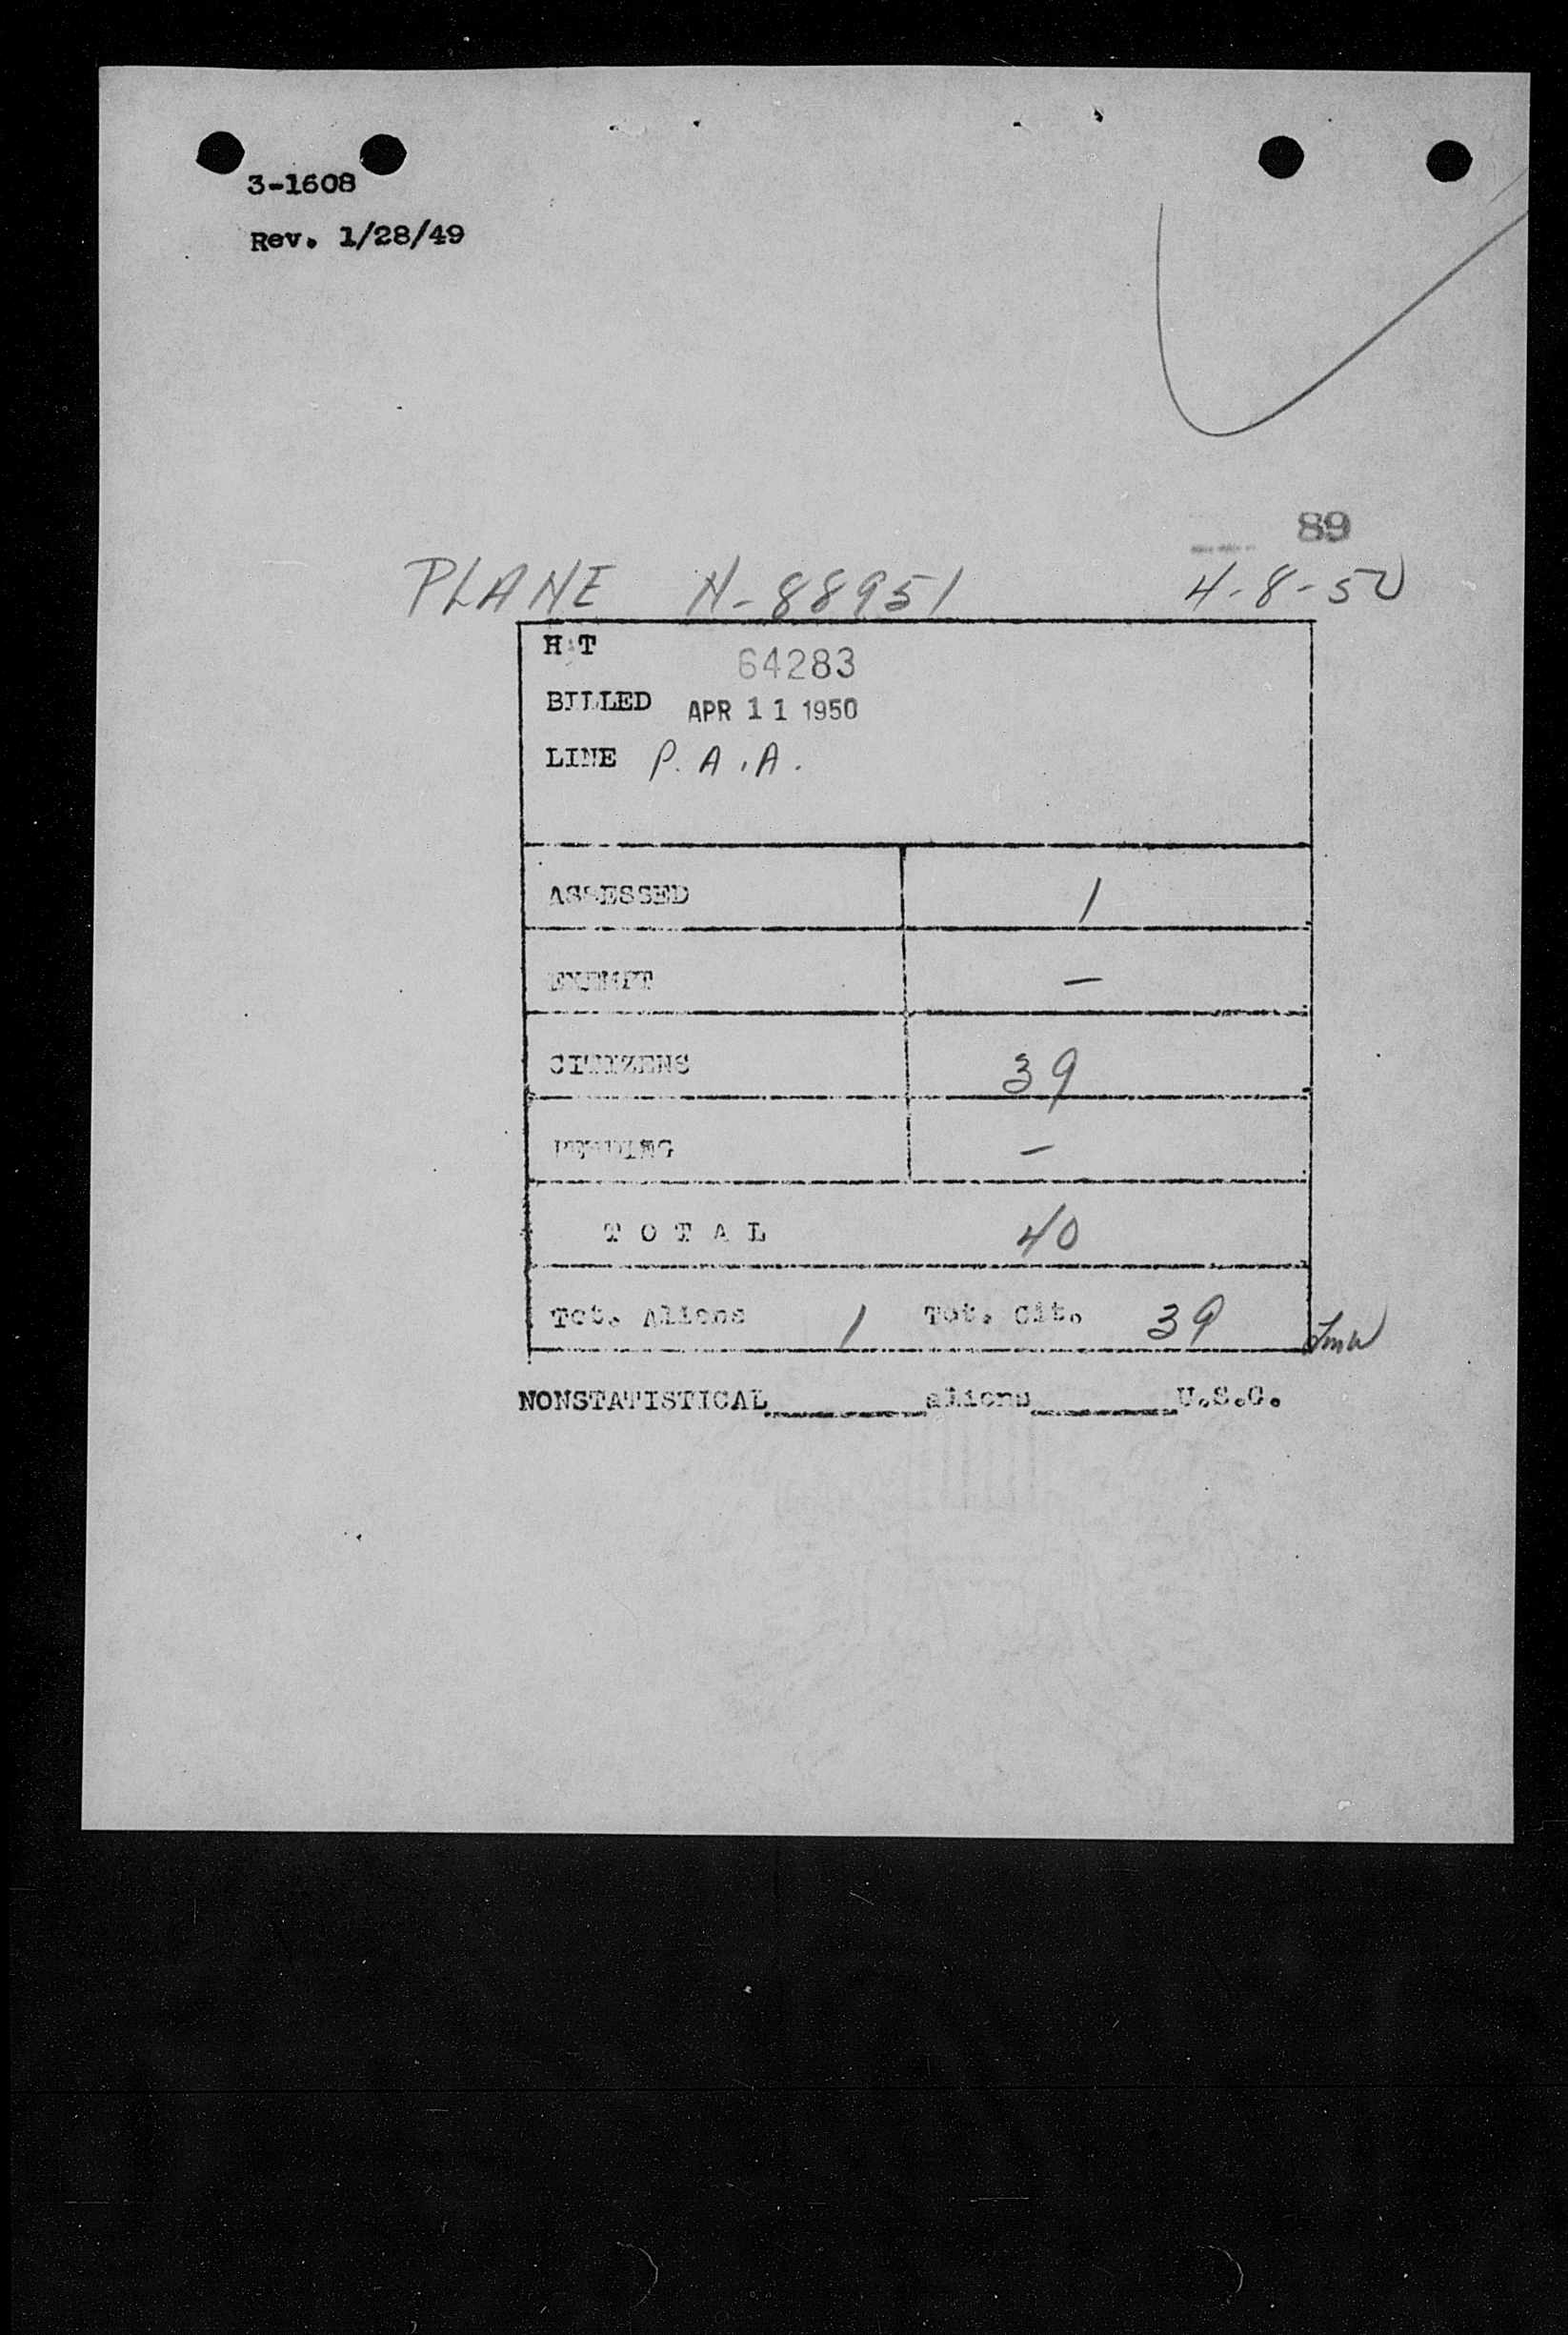 3-1608
Rev. 1/28/49
89
PLANE N-88951 4-8-50
H T 64283
BILLED APR 11 1950
LINE P.A.A.
ASSESSED 1
EXEMPT -
CITIZENS 39
PENDING -
T O T A L 40
Tot. Aliens 1 Tot. Cit. 39
NONSTATISTICAL__________aliens__________U.S.C.